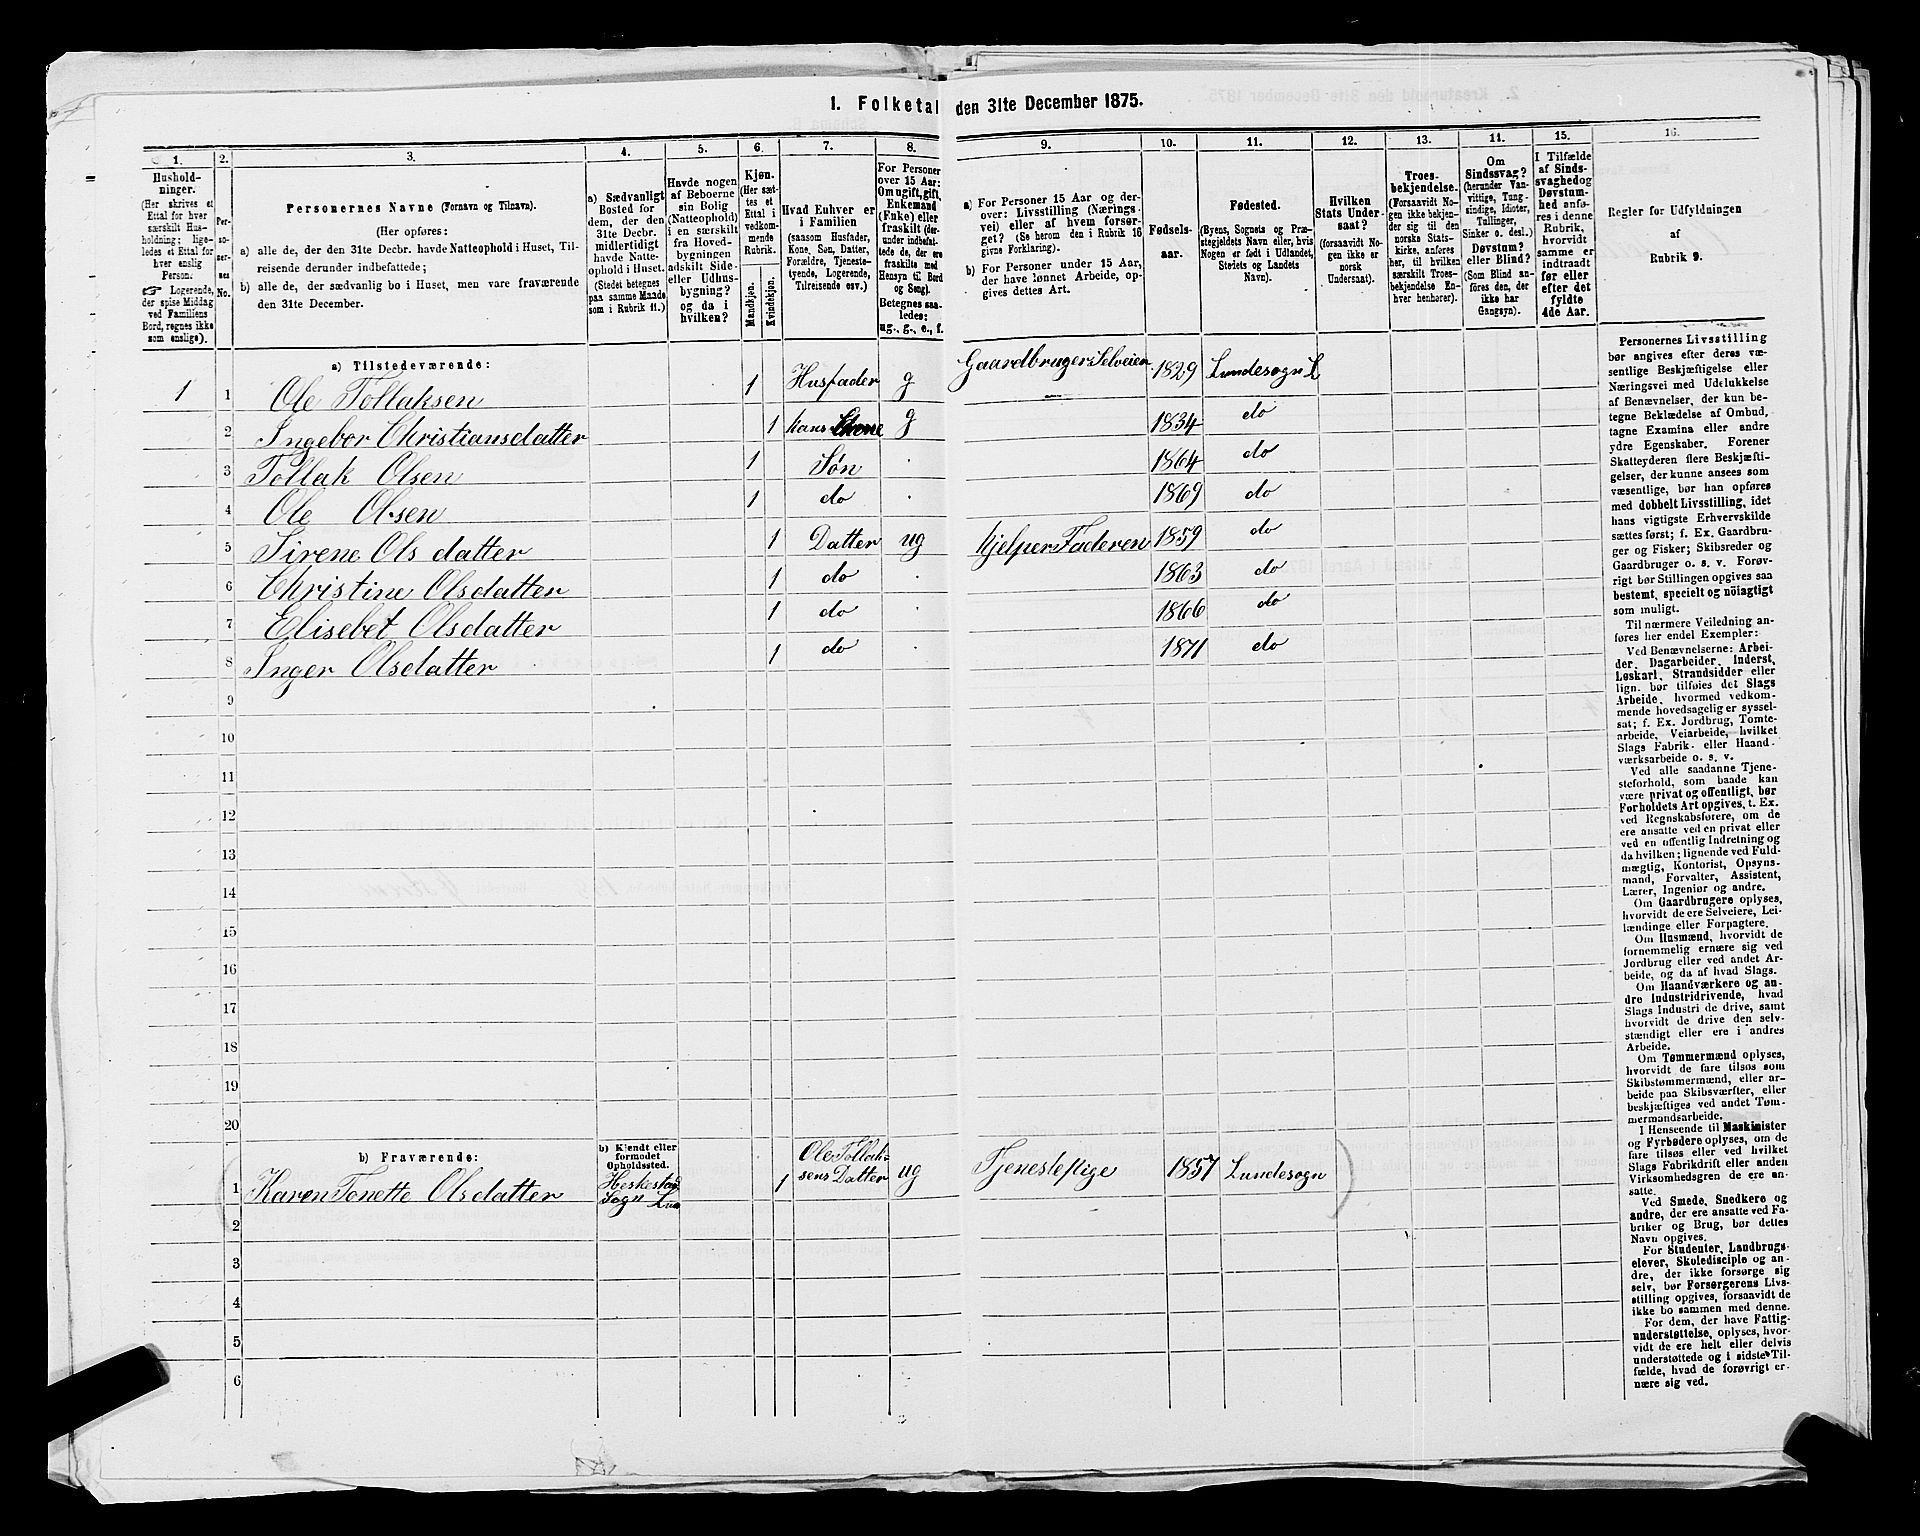 1. Folketal den 31te December 1875.
1.
2.
3.
4.
5.
6.
7.
8.
9.
10.
11.
12.
13.
14.
15.
16.
Hushold-
ninger.
(Her skrives et
Ettal for hver
særskilt Hus-
holdning; lige-
ledes et Ettal for
hver enslig
Person.
☞ Logerende,
der spise Middag
ved Familiens
Bord, regnes ikke
som enslige).
Per-
so-
ner-
nes
No.
Personernes Navne (Fornavn og Tilnavn).
(Her opføres:
a) alle de, der den 31te Decbr. havde Natteophold i Huset, Til-
reisende derunder indbefattede;
b) alle de, der sædvanlig bo i Huset, men vare fraværende
den 31te December.
a) Sædvanligt
Bosted for
dem, der den
31te Decbr.
midlertidigt
havde Natte-
ophold i Huset.
(Stedet betegnes
paa samme Maade
som i Rubrik 11.)
Havde nogen
af Beboerne
sin Bolig
(Natteophold)
i en særskilt
fra Hoved-
bygningen
adskilt Side-
eller Udhus-
bygning?
og da i
hvilken?
Kjøn.
(Her sæt-
tes et
Ettal i
vedkom-
mende
Rubrik.
Mandkjøn.
Kvindekjøn.
Hvad Enhver er
i Familien
(saasom Husfader,
Kone, Søn, Datter,
Forældre, Tjeneste-
tyende, Logerende,
Tilreisende osv.)
For Personer
over 15 Aar:
Om ugift, gift,
Enkemand
(Enke) eller
fraskilt (der-
under indbefat-
tede de, der ere
fraskilte med
Hensyn til Bord
og Seng).
Betegnes saa-
ledes:
ug., g., e., f.
a) For Personer 15 Aar og der-
over: Livsstilling (Nærings-
vei) eller af hvem forsør-
get? (Se herom den i Rubrik 16
givne Forklaring).
b) For Personer under 15 Aar,
der have lønnet Arbeide, op-
gives dettes Art.
Fødsels-
aar.
Fødested.
(Byens, Sognets og Præ-
stegjeldets Navn eller, hvis
Nogen er født i Udlandet,
Stedets og Landets
Navn).
Hvilken
Stats Under-
saat?
(forsaavidt No-
gen ikke er
norsk
Undersaat).
Troes-
bekjendelse.
(Forsaavidt No-
gen ikke bekjen-
der sig til den
norske Stats-
kirke, anføres
her, til hvilken
særskilt Troes-
bekjendelse En-
hver henhører).
Om
Sindssvag?
(herunder Van-
vittige, Tung-
sindige, Idioter,
Tullinger,
Sinker o. desl.).
Døvstum?
eller Blind?
(Som Blind an-
føres den, der
ikke har
Gangsyn).
I Tilfælde
af Sinds-
svaghed og
Døvstum-
hed anfø-
res i denne
Rubrik,
hvorvidt
samme er
indtraadt
før eller
efter det
fyldte
4de Aar.
Regler for Udfyldningen
af
Rubrik 9.
a) Tilstedeværende:
1 1 Ole Tollaksen 1 Husfader g Gaardbruger Selveier 1829 Lundesogn L
2 Ingebor Christiansdatter 1 hans Kone g 1834 do
3 Tollak Olsen 1 Søn . 1864 do
4 Ole Olsen 1 do . 1869 do
5 Sirene Ols datter 1 Datter ug hjelper Faderen 1859 do
6 Christine Olsdatter 1 do . 1863 do
7 Elisebet Olsdatter 1 do . 1866 do
8 Inger Olsdatter 1 do . 1871 do
9
10
11
12
13
14
15
16
17
18
19
20
b) Fraværende:
b) Kjendt eller
formodet
Opholdssted.
1 Karen Tonette Olsdatter Heskestad
Sogn Lun 1 Ole Tollak-
sens Datter ug Tjenestepige 1857 Lundesogn
2
3
4
5
6
Personernes Livsstilling
bør angives efter deres væ-
sentlige Beskjæftigelse eller
Næringsvei med Udelukkelse
af Benævnelser, der kun be-
tegne Beklædelse af Ombud,
tagne Examina eller andre
ydre Egenskaber. Forener
Skatteyderen flere Beskjæfti-
gelser, der kunne ansees som
væsentlige, bør han opføres
med dobbelt Livsstilling, idet
hans vigtigste Erhvervskilde
sættes først; f. Ex. Gaardbru-
ger og Fisker; Skibsreder og
Gaardbruger o. s. v. Forøv-
rigt bør Stillingen opgives saa
bestemt, specielt og nöiagtigt
som muligt.
Til nærmere Veiledning an-
føres her endel Exempler:
Ved Benævnelserne: Arbei-
der, Dagarbeider, Inderst,
Løskarl, Strandsidder eller
lign. bør tilføies det Slags
Arbeide, hvormed vedkom-
mende hovedsagelig er syssel-
sat; f. Ex. Jordbrug, Tomte-
arbeide, Veiarbeide, hvilket
Slags Fabrik- eller Haand-
værksarbeide o. s. v.
Ved alle saadanne Tjene-
steforhold, som baade kan
være privat og offentligt, bør
Forholdets Art opgives, t. Ex.
ved Regnskabsførere, om de
ere ansatte ved en privat eller
ved en offentlig Indretning og
da hvilken; lignende ved Fuld-
mægtig, Kontorist, Opsyns-
mand, Forvalter, Assistent,
Lærer, Ingeniør og andre.
Om Gaardbrugere oplyses,
hvorvidt de ere Selveiere, Lei-
lændinge eller Forpagtere.
Om Husmænd, hvorvidt de
fornemmelig ernære sig ved
Jordbrug eller ved andet Ar-
beide, og da af hvad Slags.
Om Haandværkere og an-
dre Industridrivende, hvad
Slags Industri de drive, samt
hvorvidt de drive den selv-
stændigt eller ere i andres
Arbeide.
Om Tømmermænd oplyses,
hvorvidt de fare tilsøs som
Skibstømmermænd, eller ar-
beide paa Skibsværfter, eller
beskjæftiges ved andet Tøm-
mermandsarbeide.
I Henseende til Maskinister
og Fyrbødere oplyses, om de
fare tilsøs eller ved hvilket
Slags Fabrikdrift eller anden
Virksomhedsgren de ere an-
satte.
Ved Smede, Snedkere og
andre, der ere ansatte ved Fa-
briker og Brug, bør dettes
Navn opgives.
For Studenter, Landbrugs-
elever, Skoledisciple og an-
dre, der ikke forsørge sig
selv, bør Forsørgerens Livs-
stilling opgives, forsaavidt de
ikke bo sammen med denne.
For dem, der have Fattig-
understøttelse, oplyses, hvor-
vidt de ere helt eller delvis
understøttede og i sidste Til-
fælde, hvad de forøvrigt er-
nære sig ved.